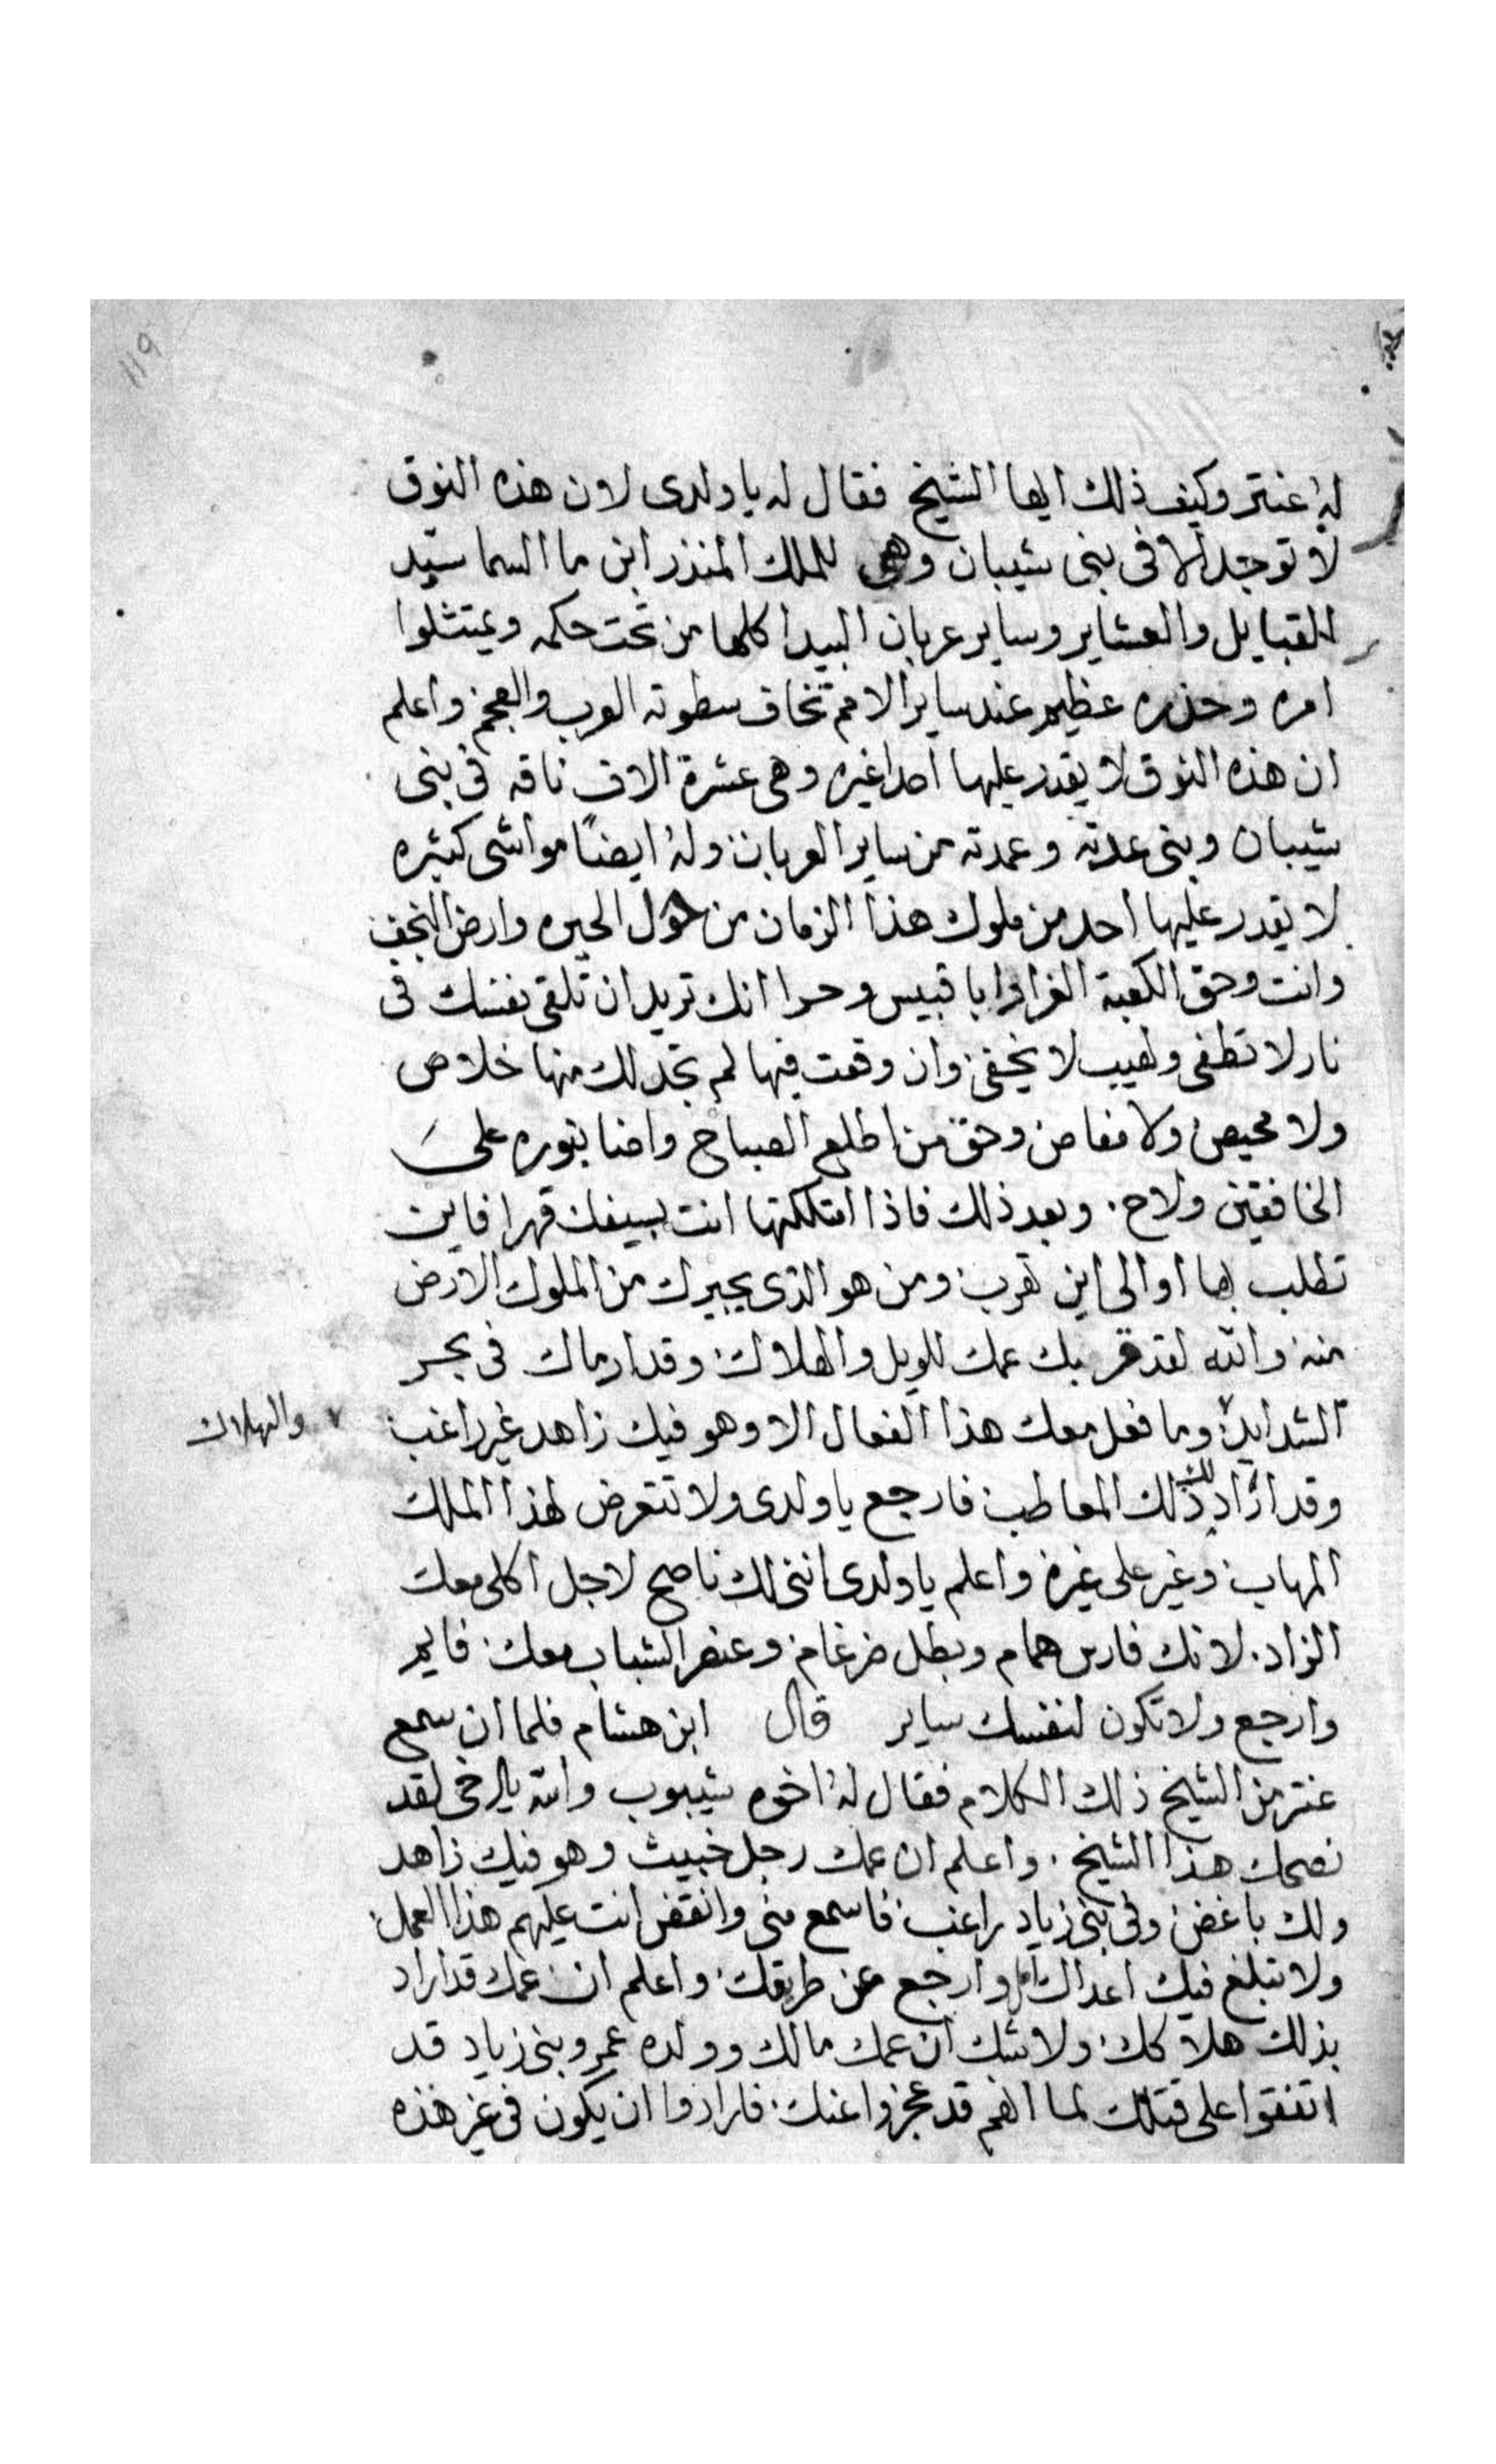 119
له عنتر وكيف ذلك ايها الشيخ فقال له يا ولدى لان هذه النوق
لا توجد الا فى بنى شيبان وهى للملك المنذر ابن ما السما سيد
القبايل والعشاير وساير عربان البيدا كلها من تحت حكمه ويمتثلوا
امره وحذره عظيم عند ساير الامم تخاف سطوته العرب والعجم واعلم
ان هذه النوق لا يقدر عليها احدا غيره وهى عشرة الاف ناقه فى بنى
شيبان وبنى عدته وعمدته من ساير العربان وله ايضًا مواشى كثيره
لا يقدر عليها احد من ملوك هذا الزمان من حول الحيره وارض النجف
وانت وحق الكعبة الغرا وابا قبيس وحرا انك تريد ان تلقى نفسك فى
نار لا تطفى ولهيب لا يخفى وان وقعت فيها لم تجد لك منها خلاص
ولا محيص ولا مناص وحق من اطلع الصباح واضا بنوره على
الخافقين ولاح . وبعد ذلك فاذا امتلكتها انت بسيفك قهرا فاين
تطلب بها او الى اين تهرب ومن هو الذى يجيرك من الملوك الارض
منه والله لقد قربك عمك للويل والهلاك وقد ارماك فى بحر
الشدايد وما فعل معك هذا الفعال الا وهو فيك زاهد غير راغب
والهلاك
وقد اراد لك ذلك المعاطب فارجع يا ولدى ولا تتعرض لهذا الملك
المهاب وغير على غيره واعلم يا ولدى اننى لك ناصح لاجل اكلى معك
الزاد . لانك فارس همام وبطل ضرغام وعنصر الشباب معك فايم
وارجع ولا تكون لنفسك ساير قال ابن هشام فلما ان سمع
عنتر من الشيخ ذلك الكلام فقال له اخوه شيبوب والله يا اخى لقد
نصحك هذا الشيخ . واعلم ان عمك رجل خبيث وهو فيك زاهد
ولك باغض وفى بنى زياد راغب فاسمع منى وانقض انت عليهم هذا العمل
ولا تبلغ فيك اعداك امل وارجع عن طريقك واعلم ان عمك قد اراد
بذلك هلاكك ولا شك ان عمك مالك وولده عمرو بنى زياد قد
اتفقوا على قتلك لما انهم قد عجزوا عنك فارادوا ان يكون فى غير هذه